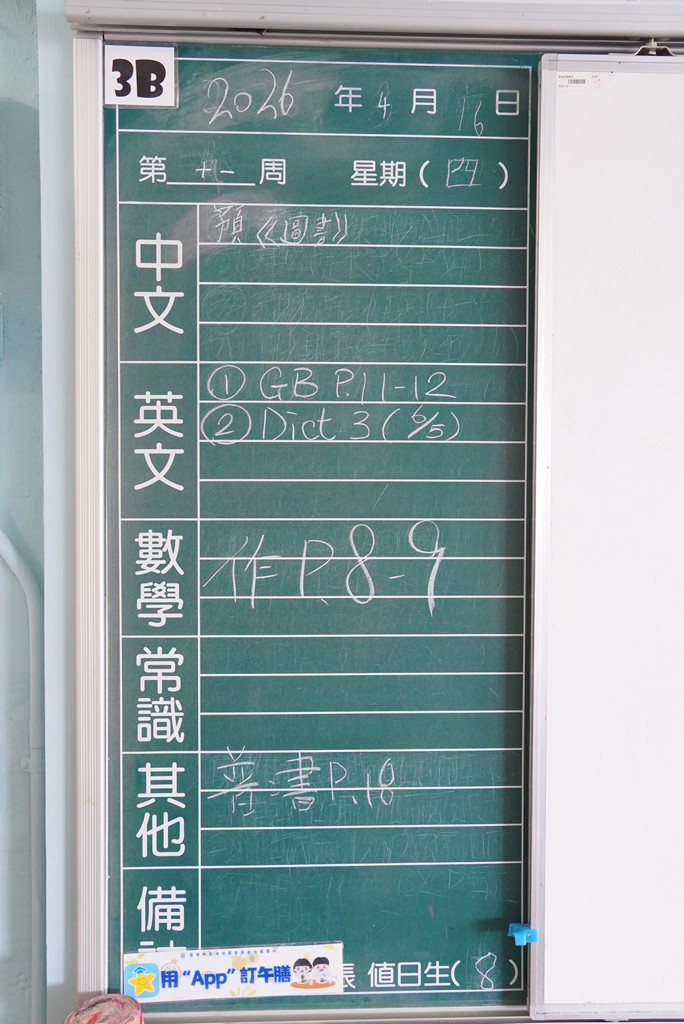 3B
2026 年 4 月 16 日
第 十一 周 星期 ( 四 )
中文
預《圖書》
英文
① GB P.11-12
② Dict 3 (6/5)
數學
作 P.8-9
常識
其他
普:書 P.18
備
用 “App” 訂午膳
張 值日生( 8 )